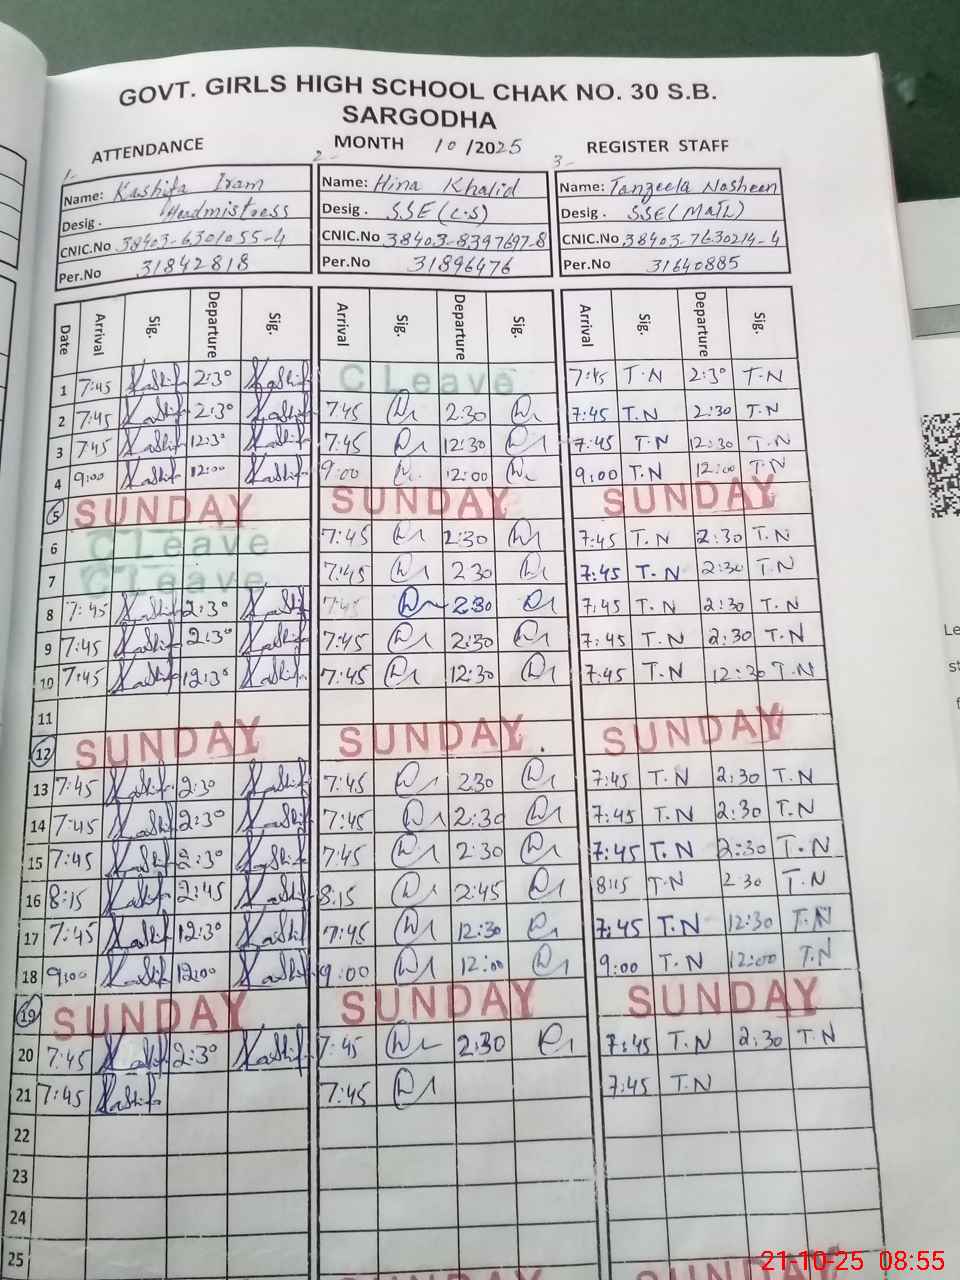 GOVT. GIRLS HIGH SCHOOL CHAK NO. 30 S.B.
SARGODHA
ATTENDANCE MONTH 10/2025 REGISTER STAFF
1- 2- 3-
Name: Kashifa Iram Name: Hina Khalid Name: Tanzeela Nosheen
Desig. Headmistress Desig. SSE(C.S) Desig. SSE(Math)
CNIC.No 38403-6301055-4 CNIC.No 38403-8397697-8 CNIC.No 38403-7630214-4
Per.No 31842818 Per.No 31896476 Per.No 31640885
Date Arrival Sig. Departure Sig. Arrival Sig. Departure Sig. Arrival Sig. Departure Sig.
1 7:45 Kashifa 2:30 Kashifa C Leave 7:45 T.N 2:30 T.N
2 7:45 Kashifa 2:30 Kashifa 7:45 2:30 7:45 T.N 2:30 T.N
3 7:45 Kashifa 12:30 Kashifa 7:45 12:30 7:45 T.N 12:30 T.N
4 9:00 Kashifa 12:00 Kashifa 9:00 12:00 9:00 T.N 12:00 T.N
5 SUNDAY SUNDAY SUNDAY
6 C Leave 7:45 2:30 7:45 T.N 2:30 T.N
7 C Leave 7:45 2:30 7:45 T.N 2:30 T.N
8 7:45 Kashifa 2:30 Kashifa 7:45 2:30 7:45 T.N 2:30 T.N
9 7:45 Kashifa 2:30 Kashifa 7:45 2:30 7:45 T.N 2:30 T.N
10 7:45 Kashifa 12:30 Kashifa 7:45 12:30 7:45 T.N 12:30 T.N
11
12 SUNDAY SUNDAY SUNDAY
13 7:45 Kashifa 2:30 Kashifa 7:45 2:30 7:45 T.N 2:30 T.N
14 7:45 Kashifa 2:30 Kashifa 7:45 2:30 7:45 T.N 2:30 T.N
15 7:45 Kashifa 2:30 Kashifa 7:45 2:30 7:45 T.N 2:30 T.N
16 8:15 Kashifa 2:45 Kashifa 8:15 2:45 8:15 T.N 2:30 T.N
17 7:45 Kashifa 12:30 Kashifa 7:45 12:30 7:45 T.N 12:30 T.N
18 9:00 Kashifa 12:00 Kashifa 9:00 12:00 9:00 T.N 12:00 T.N
19 SUNDAY SUNDAY SUNDAY
20 7:45 Kashifa 2:30 Kashifa 7:45 2:30 7:45 T.N 2:30 T.N
21 7:45 Kashifa 7:45 7:45 T.N
22
23
24
25
SUNDAY
21-10-25 08:55